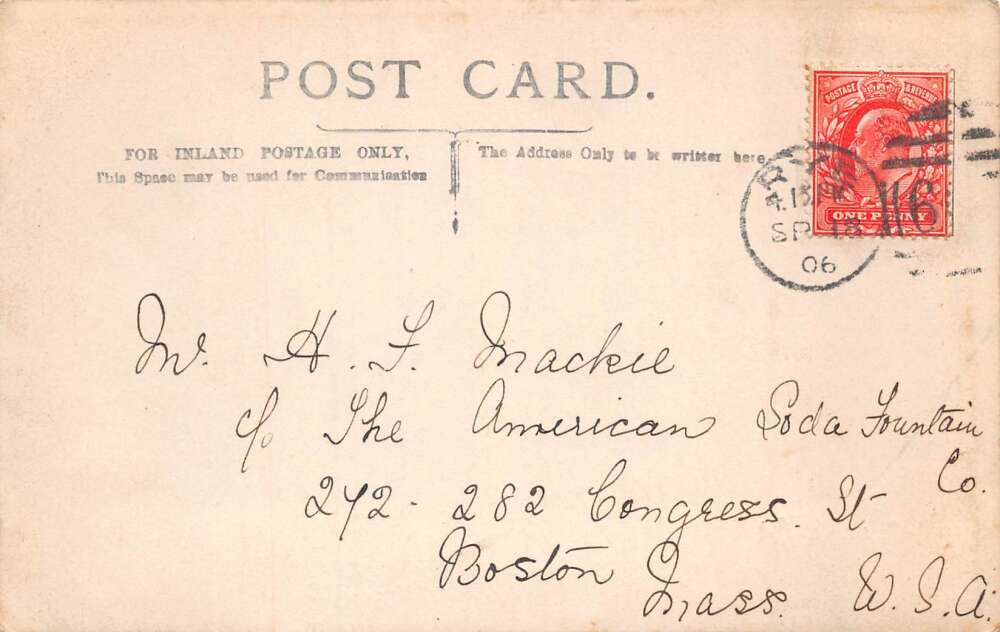 POST CARD.
FOR INLAND POSTAGE ONLY,
This Space may be used for Communication
The Address Only to be written here
POSTAGE & REVENUE
ONE PENNY
SP 18
06
116
Mr. H. F. Mackie
c/o The American Soda Fountain
Co.
272-282 Congress. St
Boston
Mass. U.S.A.